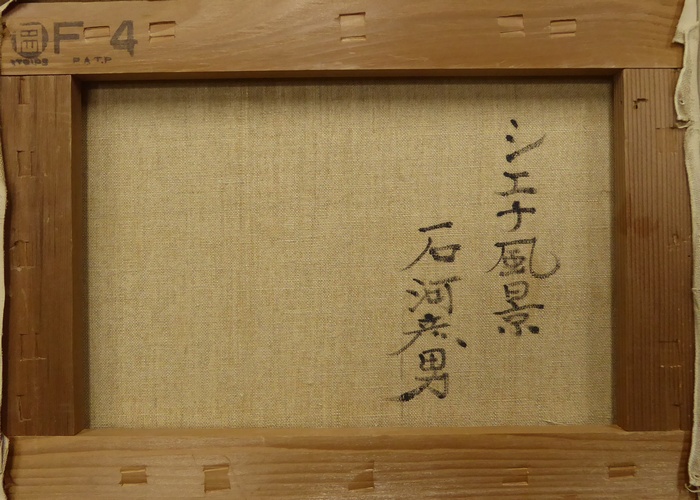 F 4
PAT.P
シエナ風景
石河彦男